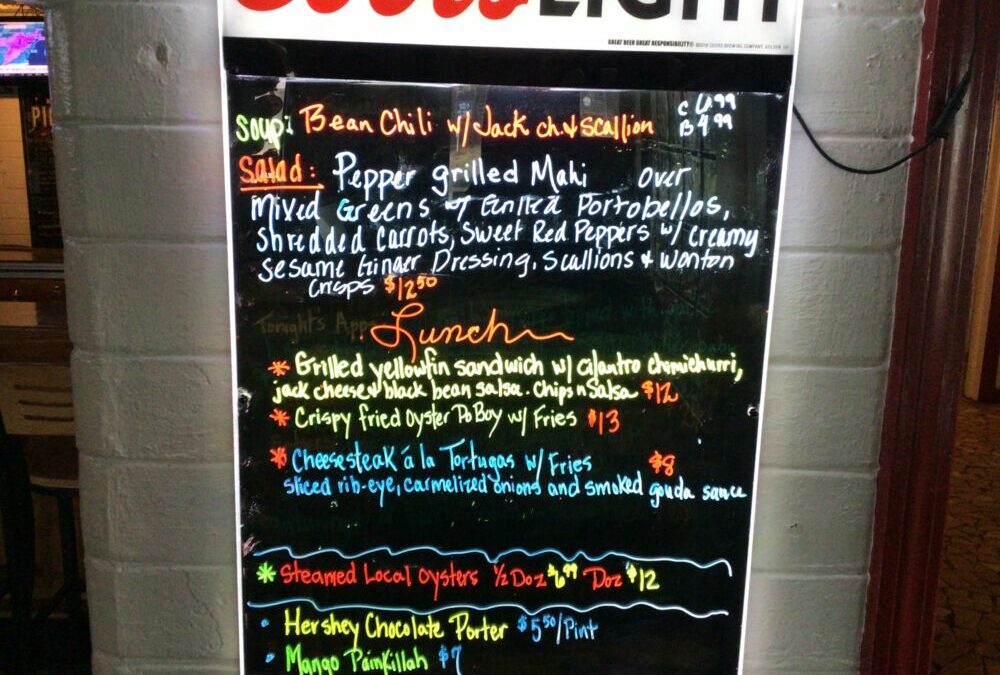 Coors LIGHT
GREAT BEER GREAT RESPONSIBILITY®
C 6.99
Soup: Bean Chili w/ Jack ch. & scallion B 4.99
Salad: Pepper grilled Mahi over
Mixed Greens w/ Grilled Portobellos,
shredded carrots, Sweet Red Peppers w/ creamy
Sesame Ginger Dressing, Scallions & Wonton
Crisps $12.50
Tonight's App
Lunch
* Grilled yellowfin sandwich w/ cilantro chimichurri,
jack cheese & black bean salsa. Chips n Salsa $12
* Crispy fried Oyster Po Boy w/ Fries $13
* Cheesesteak á la Tortugas w/ Fries $8
sliced rib-eye, carmelized onions and smoked gouda sauce
* Steamed Local Oysters 1/2 Doz $6.99 Doz $12
• Hershey Chocolate Porter $5.50/Pint
• Mango Painkillah $7